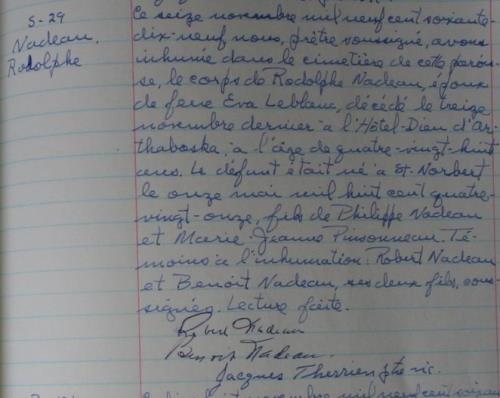 S-29
Nadeau,
Rodolphe
Ce seize novembre mil neuf cent soixante
dix-neuf nous, prêtre soussigné, avons
inhumé dans le cimetière de cette parois-
se, le corps de Rodolphe Nadeau, époux
de feue Eva Leblanc, décédé le treize
novembre dernier à l'Hôtel-Dieu d'Ar-
thabaska, à l'âge de quatre-vingt-huit
ans. Le défunt était né à St-Norbert
le onze mai mil huit cent quatre-
vingt-onze, fils de Philippe Nadeau
et Marie-Jeanne Pinsonneau. Té-
moins à l'inhumation: Robert Nadeau
et Benoît Nadeau, ses deux fils, sous-
signés. Lecture faite.
Robert Nadeau
Benoit Nadeau.
Jacques Therrien ptre vic.
novembre mil neuf cent soixan